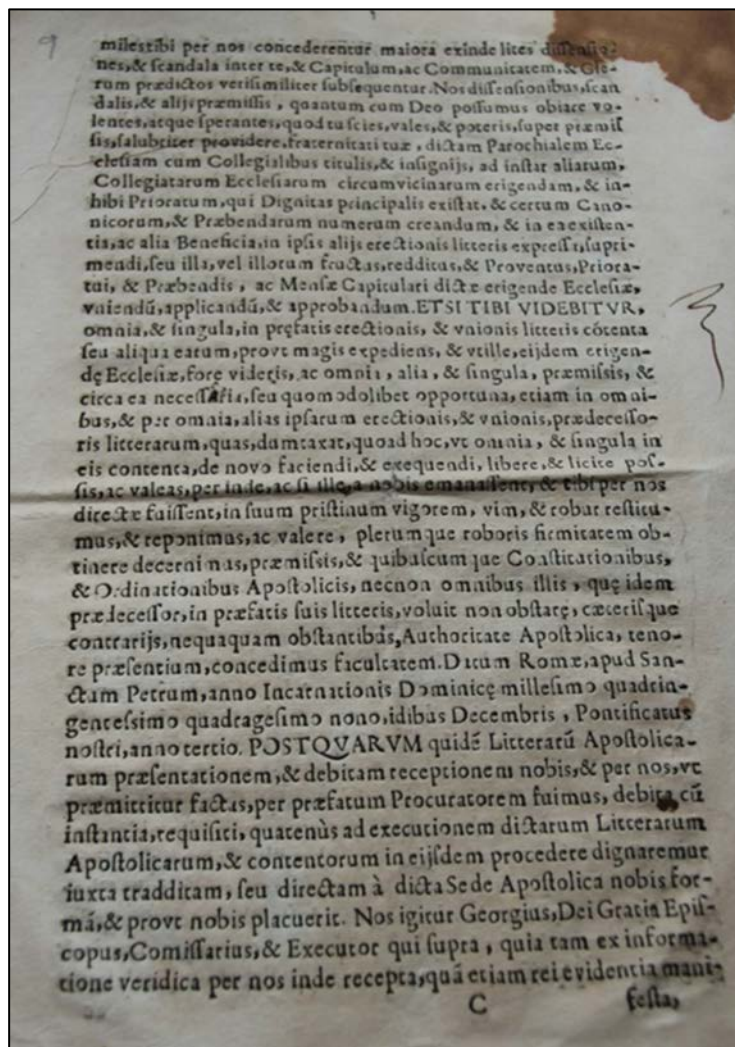 9
milestibi per nos concederentur maiora exinde lites dissensio-
nes,& scandala inter te,& Capitulum,ac Communitatem,& Cle-
rum prædictos verisimiliter subsequentur.Nos dissensionibus,scan
dalis,& alijs præmissis , quantum cum Deo possumus obiare vo-
lentes,atque sperantes,quod tu scies,vales,& poteris,super præmis
sis,salubriter providere,fraternitati tuæ , dictam Parochialem Ec-
clesiam cum Collegialibus titulis,& insignijs, ad instar aliarum,
Collegiatarum Ecclesiarum circumvicinarum erigendam, & in-
hibi Prioratum,qui Dignitas principalis existat, & certum Cano-
nicorum,& Præbendarum numerum creandum, & in ea existen-
tia,ac alia Beneficia,in ipsis alijs erectionis litteris expressi,supri-
mendi,seu illa,vel illorum fructus,redditus,& Proventus,Priora-
tui, & Præbendis , ac Mensæ Capitulari dictæ erigende Ecclesiæ,
vniendũ,applicandũ,& approbandum.ETSI TIBI VIDEBITVR,
omnia,& singula,in pręfatis erectionis, & vnionis litteris cótenta
seu aliqua earum,provt magis expediens, & vtille,eijdem erigen-
dę Ecclesiæ,forę videris, ac omnia , alia , & singula, præmissis, &
circa ea necessaria,seu quomodolibet opportuna,etiam in omni-
bus,& per omnia,alias ipsarum erectionis,& vnionis,prædecesso-
ris litterarum,quas,dumtaxat,quoad hoc,vt omnia , & singula in
eis contenta,de novo faciendi,& exequendi, libere,& licite pos-
sis,ac valeas,per inde,ac si illę,a nobis emanassent,& tibi per nos
directæ fuissent,in suum pristinum vigorem, vim,& robur restitu-
mus,& reponimus,ac valere , plerumque roboris firmitatem ob-
tinere decernimus,præmissis,& quibuscumque Constitutionibus,
& Ordinationibus Apostolicis, necnon omnibus illis , quę idem
prædecessor,in præfatis suis litteris,voluit non obstarę, cæterisque
contrarijs,nequaquam obstantibus,Authoritate Apostolica, teno-
re præsentium,concedimus facultatem.Datum Romæ,apud San-
ctam Petrum,anno Incarnationis Dominicę millesimo quadrin-
gentessimo quadragesimo nono,idibus Decembris , Pontificatus
nostri,anno tertio. POSTQVARVM quidẽ Litterarũ Apostolica-
rum præsentationem,& debitam receptionem nobis,& per nos,vt
præmittitur factas,per præfatum Procuratorem fuimus, debita cũ
instantia,requisiti, quatenùs ad executionem dictarum Litterarum
Apostolicarum,& contentorum in eijsdem procedere dignaremur
iuxta tradditam, seu directam à dicta Sede Apostolica nobis for-
mã,& provt nobis placuerit. Nos igitur Georgius,Dei Gratia Epis-
copus,Comissarius,& Executor qui supra , quia tam ex informa-
tione veridica per nos inde recepta,quã etiam rei evidentia mani-
C festa,